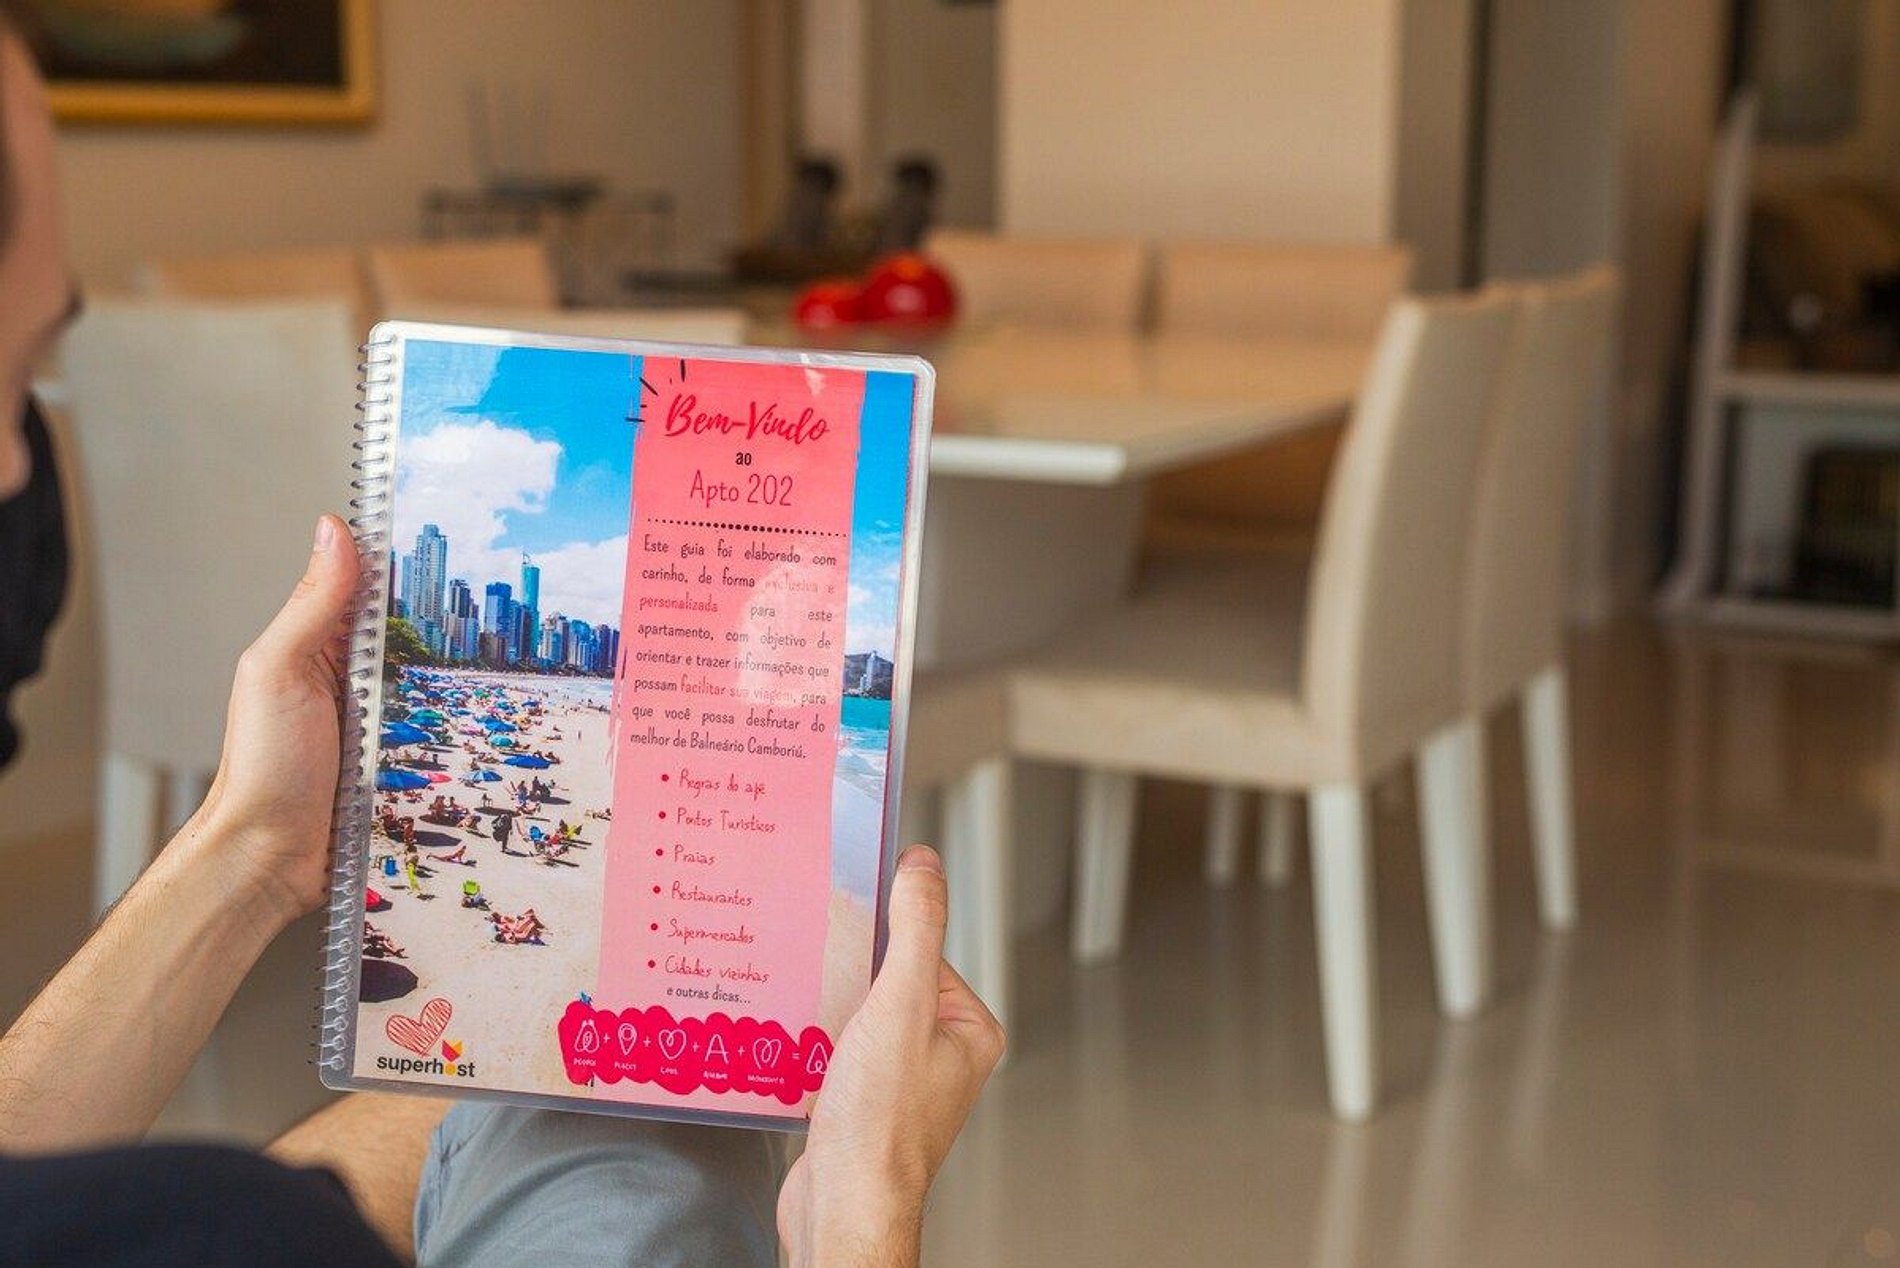 Bem-Vindo
ao
Apto 202
Este guia foi elaborado com
carinho, de forma exclusiva e
personalizada para este
apartamento, com objetivo de
orientar e trazer informações que
possam facilitar sua viagem, para
que você possa desfrutar do
melhor de Balneário Camboriú.
• Regras do apê
• Pontos Turísticos
• Praias
• Restaurantes
• Supermercados
• Cidades vizinhas
e outras dicas...
superhost
+ + + A + =
PEOPLE PLACES LOVE AIRBNB